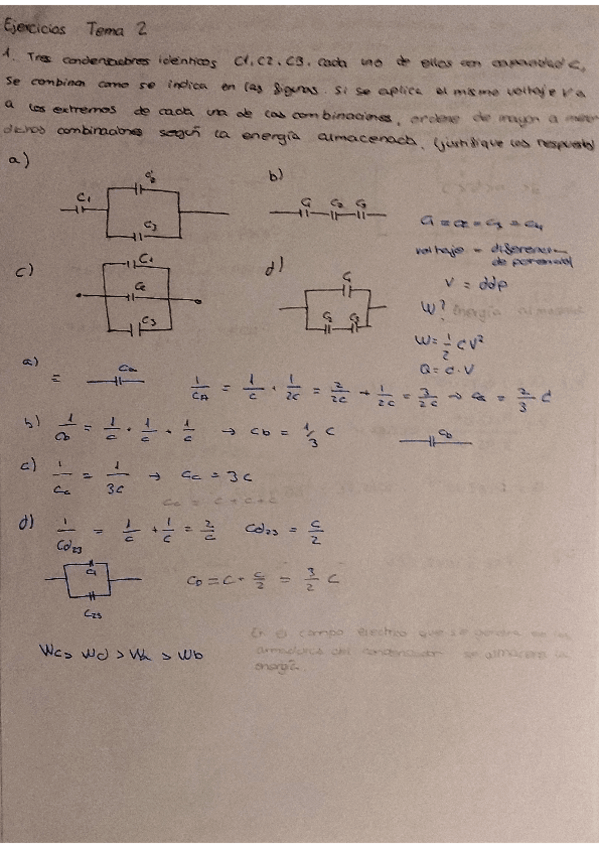 Ejercicios Tema 2
1. Tres condensadores idénticos C1, C2, C3, cada uno de ellos con capacidad C,
se combinan como se indica en las figuras. Si se aplica el mismo voltaje V a
a los extremos de cada una de las combinaciones, ordene de mayor a menor
dichas combinaciones según la energía almacenada. (justifique las respuestas)
a)
C1
C2
C3
b)
C1 C2 C3
c)
C1
C2
C3
d)
C1
C2 C3
C1 = C2 = C3 = C4
voltaje = diferencia
de potencial
V = ddp
W?
Energía almacenada
W = 1/2 CV²
Q = C · V
a)
= Ca
1/CA = 1/C + 1/2C = 2/2C + 1/2C = 3/2C → Ca = 2/3 C
b) 1/Cb = 1/C + 1/C + 1/C → Cb = 1/3 C
Cb
c) 1/Cc = 1/3C → Cc = 3C
Cc = C + C + C
d) 1/Cd23 = 1/C + 1/C = 2/C Cd23 = C/2
C1
C23
CD = C + C/2 = 3/2 C
Wc > Wd > Wa > Wb
En el campo eléctrico que se genera en las
armaduras del condensador se almacena la
energía.